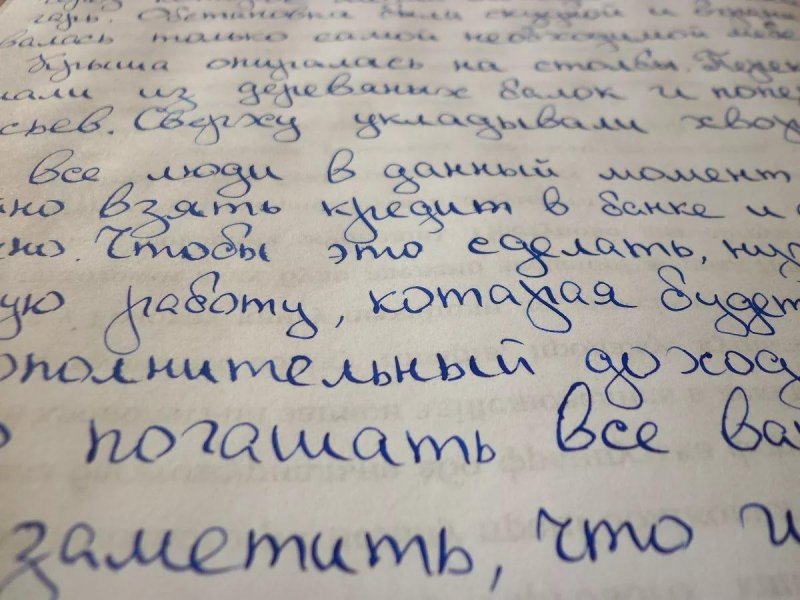 гарь. Обстановка была скудной и
валась только самой необходимой мебе
Крыша опиралась на столбы. Перек
лали из деревяных балок и попер
сьев. Сверху укладывали хвор
все люди в данный момент
но взять кредит в банке и
но. Чтобы это сделать, нуж
ую работу, которая будет
ополнительный доход
погашать все ва
заметить, что и